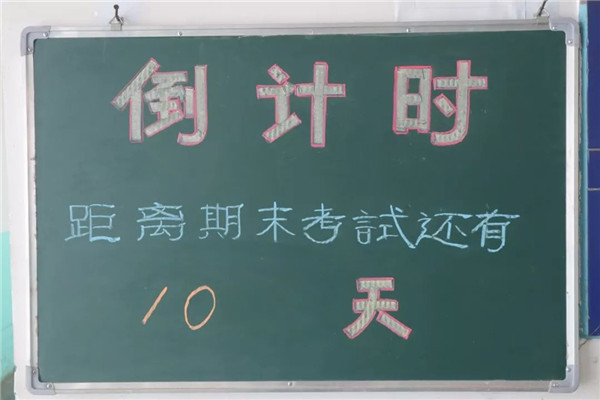 倒计时
距离期末考試还有
10 天